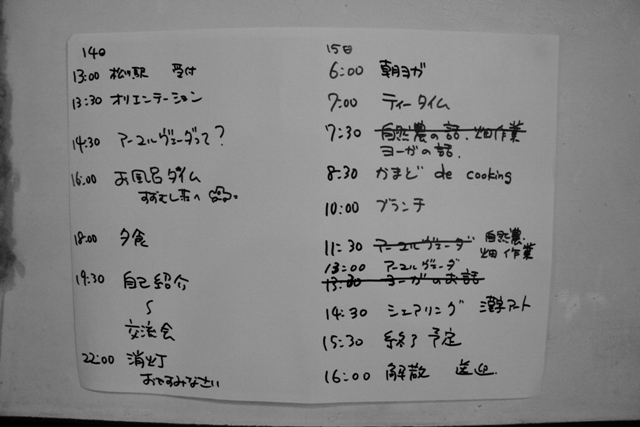 14日
13:00 松川駅 受付
13:30 オリエンテーション
14:30 アーユルヴェーダって?
16:00 お風呂タイム
すずむし荘へ
18:00 夕食
19:30 自己紹介
〜
交流会
22:00 消灯
おやすみなさい
15日
6:00 朝ヨガ
7:00 ティータイム
7:30 自然農の話、畑作業
ヨーガの話.
8:30 かまど de cooking
10:00 ブランチ
11:30 アーユルヴェーダ 自然農.
畑作業
13:00 アーユルヴェーダ
13:30 ヨーガのお話
14:30 シェアリング 漢字アート
15:30 終了予定
16:00 解散 送迎.